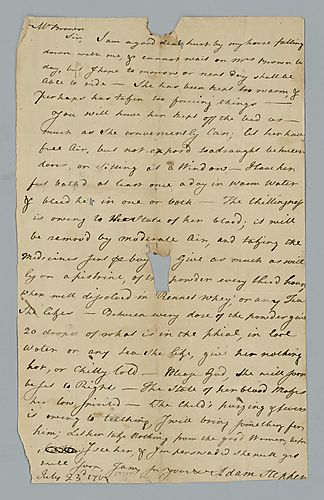 Mr Brown
Sir, I am a good deal hurt by my horse falling
down with me, & cannot wait on Mrs Brown to
day, but I hope to morrow or next day shall be
able to ride — She has been kept too warm, &
perhaps has taken too forcing things —
You will have her kept off the bed as
much as She conveniently Can; let her have
free Air, but not expos'd to a draught between
doors, or sitting at a Window — Have her
feet bath'd at least once a day in warm Water
& bleed her in one or both — The Chillyness
is owing to the State of her blood; it will
be remov'd by moderate Air, and taking the
Medicines sent & boy — Give as much as will
ly on a pistrine, of the powder every third hour
when well disolved in Rennet Whey; or any Tea
She likes — Between every dose of the powder give
20 drops of what is in the phial, in cold
Water or any tea She likes, give her nothing
hot, or Chilly Cold — Please God, She will soon
be set to Rights — The State of her blood Makes
her low Spirited — The Child's purging & fever
is owing to teething, I will bring Something for
him; Let her take Nothing from the good Women, before
I see her, & I'm perswaded She will get
well soon. I am, Sr your &c Adam Stephen
July 23d